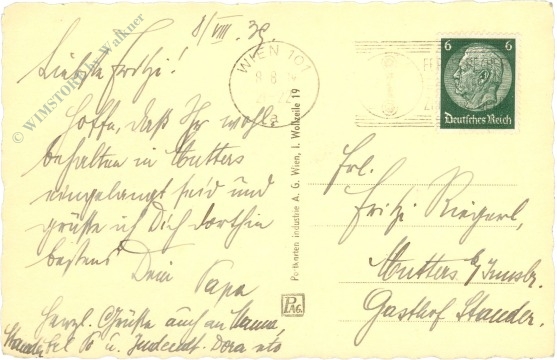 8/VIII. 39.
Liebste Fritzi!
Hoffe, daß Ihr wohl-
behalten in Mutters
eingelangt seid und
grüße ich Dich dorthin
bestens
Dein Papa
Herzl. Grüße auch an Mama,
u. Dora etc
© WIMSTORE by Walkner
WIEN 101
8. 8
a
6 6
Deutsches Reich
Postkarten industrie A. G. Wien, I. Wollzeile 19
PAG
Frl.
Fritzi Riegerl,
Mutters b/Innsbr.
Gasthof Stauder.